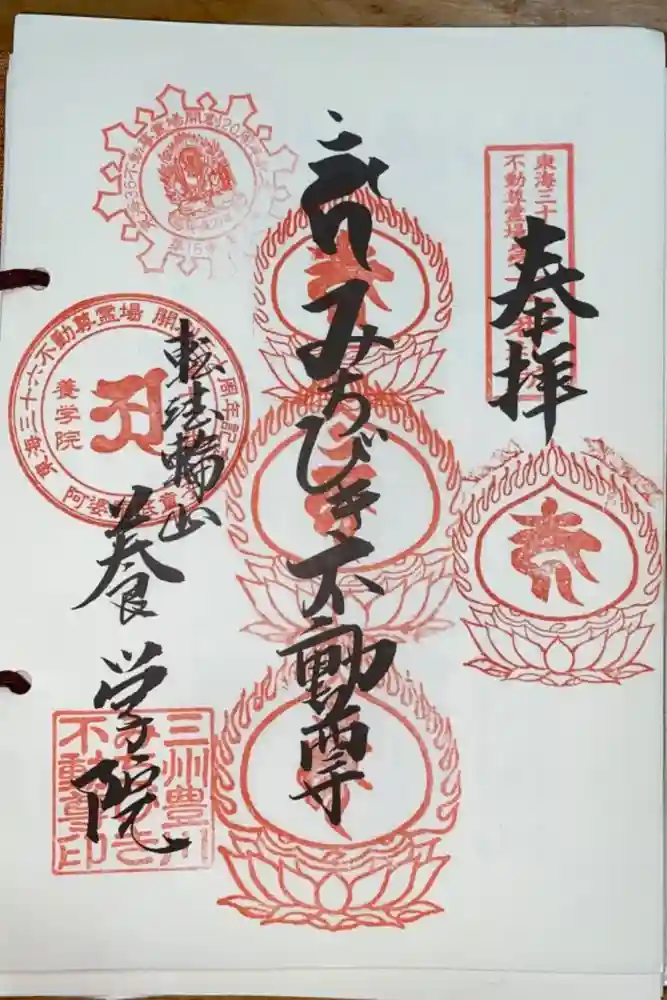 奉拝
東海三十
不動尊霊場
みちびき不動尊
転法輪山
養学院
東海36不動尊霊場開創20周年
東海三十六不動尊霊場 開
周年記
養学院
三州豊川
みちびき
不動尊印